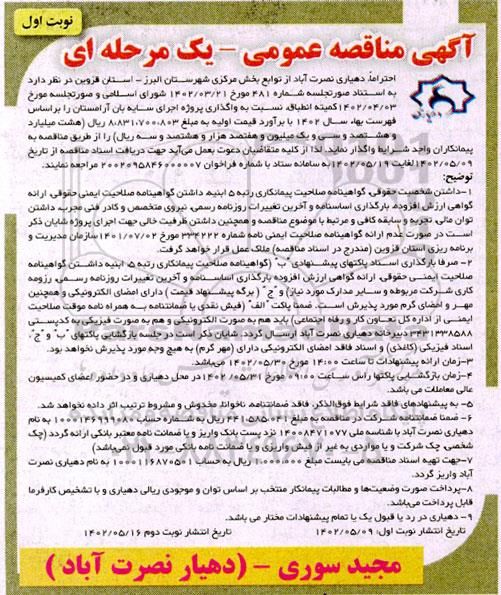 نوبت اول
آگهی مناقصه عمومی - یک مرحله ای
احتراماً، دهیاری نصرت آباد از توابع بخش مرکزی شهرستان البرز - استان قزوین در نظر دارد
به استناد صورتجلسه شماره ۴۸۱ مورخ ۱۴۰۲/۰۳/۲۱ شورای اسلامی و صورتجلسه مورخ
۱۴۰۲/۰۴/۰۳ کمیته انطباق، نسبت به واگذاری پروژه اجرای سایه بان آرامستان را براساس
فهرست بهاء سال ۱۴۰۲ با برآورد قیمت اولیه به مبلغ ۸،۸۳۱،۷۰۰،۸۰۳ ریال (هشت میلیارد
و هشتصد و سی و یک میلیون و هفتصد هزار و هشتصد و سه ریال) را از طریق مناقصه به
پیمانکاران واجد شرایط واگذار نماید. لذا از کلیه متقاضیان دعوت بعمل می‌آید جهت دریافت اسناد مناقصه از تاریخ
۱۴۰۲/۰۵/۰۹ لغایت ۱۴۰۲/۰۵/۱۹ به سامانه ستاد با شماره فراخوان ۲۰۰۲۰۹۵۸۴۶۰۰۰۰۰۷ مراجعه نمایند.
توضیح:
۱-داشتن شخصیت حقوقی، گواهینامه صلاحیت پیمانکاری رتبه ۵ ابنیه، داشتن گواهینامه صلاحیت ایمنی حقوقی، ارائه
گواهی ارزش افزوده، بارگذاری اساسنامه و آخرین تغییرات روزنامه رسمی، نیروی متخصص و کادر فنی مجرب، داشتن
توان مالی، تجربه و سابقه کافی و مرتبط با موضوع مناقصه و همچنین داشتن ظرفیت خالی جهت اجرای پروژه شایان ذکر
است در صورت عدم ارائه گواهینامه صلاحیت ایمنی نامه شماره ۳۳۴۲۲۲ مورخ ۱۴۰۱/۰۷/۰۲ سازمان مدیریت و
برنامه ریزی استان قزوین (مندرج در اسناد مناقصه) ملاک عمل قرار خواهد گرفت.
۲- صرفا بارگذاری اسناد پاکتهای پیشنهادی "ب" (گواهینامه صلاحیت پیمانکاری رتبه ۵ ابنیه داشتن گواهینامه
صلاحیت ایمنی حقوقی، ارائه گواهی ارزش افزوده بارگذاری اساسنامه و آخرین تغییرات روزنامه رسمی، رزومه
کاری شرکت مربوطه و سایر مدارک مورد نیاز) و "ج" ( برگه پیشنهاد قیمت ) دارای امضای الکترونیکی و همچنین
مهر و امضای گرم مورد پذیرش است. ضمنا پاکت "الف" (فیش نقدی یا ضمانتنامه به همراه نامه موقت صلاحیت
ایمنی از اداره کل تعاون کار و رفاه اجتماعی) باید هم به صورت الکترونیکی و هم به صورت فیزیکی به کدپستی
۳۴۳۱۳۳۸۵۸۸ دبیرخانه دهیاری نصرت آباد ارسال گردد. شایان ذکر است در جلسه بازگشایی پاکتهای "ب" و "ج"،
اسناد فیزیکی (کاغذی) و اسناد فاقد امضای الکترونیکی دارای (مهر گرم) به هیچ وجه مورد پذیرش نخواهد بود.
۳-زمان ارائه پیشنهادات تا ساعت ۱۴:۰۰ مورخ ۱۴۰۲/۰۵/۳۰ می‌باشد.
۴-زمان بازگشایی پاکتها راس ساعت ۰۹:۰۰ مورخ ۱۴۰۲/۰۵/۳۱ در محل دهیاری و در حضور اعضای کمیسیون
عالی معاملات می باشد.
۵- به پیشنهادهای فاقد شرایط فوق الذکر، فاقد ضمانتنامه، ناخوانا، مخدوش و مشروط ترتیب اثر داده نخواهد شد.
۶- ضمنا ضمانتنامه شرکت در مناقصه به مبلغ ریال به شماره حساب به نام
دهیاری نصرت آباد با شناسه ملی ۱۴۰۰۸۴۷۱۰۷۷ نزد پست بانک واریز و یا ضمانت نامه معتبر بانکی ارائه گردد (چک
شخصی، چک شرکت و یا مواردی به غیر از فیش واریزی و یا ضمانت نامه بانکی مورد قبول نمی‌باشد)
۷-جهت تهیه اسناد مناقصه می بایست مبلغ ریال به حساب به نام دهیاری نصرت
آباد واریز گردد.
۸-پرداخت صورت وضعیت‌ها و مطالبات پیمانکار منتخب بر اساس توان و موجودی ریالی دهیاری و با تشخیص کارفرما
قابل پرداخت می‌باشد.
۹- دهیاری در رد یا قبول یک یا تمام پیشنهادات مختار می باشد.
تاریخ انتشار نوبت اول: ۱۴۰۲/۰۵/۰۹ تاریخ انتشار نوبت دوم ۱۴۰۲/۰۵/۱۶
مجید سوری - (دهیار نصرت آباد )